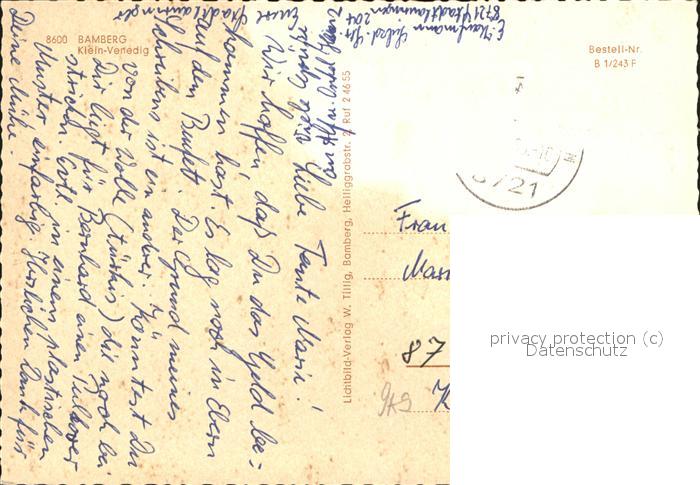 8600 BAMBERG
Klein-Venedig
Bestell-Nr.
B 1/243 F
Lichtbild-Verlag W. Tillig, Bamberg, Heiliggrabstr. 2, Ruf 2 46 55
8721
Liebe Tante Marie!
Wir hoffen, daß Du das Geld be-
kommen hast. Es lag noch in Ebern
auf dem Bufett. Der Grund meines
Schreibens ist ein andrer. Könntest Du
von der Wolle (türkis) die noch bei
Dir liegt für Bernhard einen Pullover
stricken. Evtl. in einem plastischen
Muster einfarbig. Herzlichen Dank für
Deine Mühe.
Eure Stadtlauringer
8721 Stadtlauringen 204
Frau
87
privacy protection (c)
Datenschutz